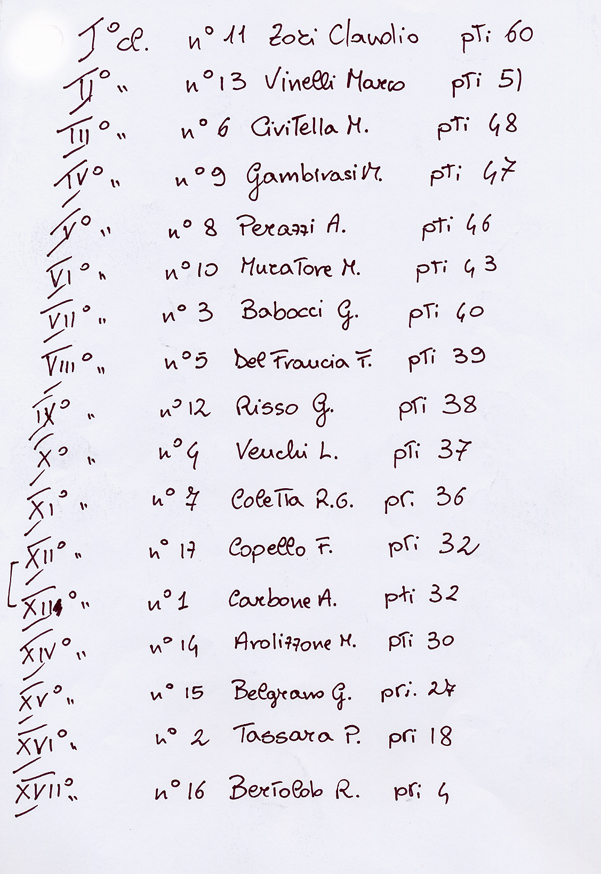 I° cl. n° 11 Zozi Claudio pti 60
II° " n° 13 Vinelli Marco pti 51
III° " n° 6 Civitella M. pti 48
IV° " n° 9 Gambirasi M. pti 47
V° " n° 8 Perazzi A. pti 46
VI° " n° 10 Muratore M. pti 43
VII° " n° 3 Babocci G. pti 40
VIII° " n° 5 Del Francia F. pti 39
IX° " n° 12 Risso G. pti 38
X° " n° 4 Venchi L. pti 37
XI° " n° 7 Coletta R.G. pti 36
XII° " n° 17 Copello F. pti 32
XIII° " n° 1 Carbone A. pti 32
XIV° " n° 14 Avolizzone M. pti 30
XV° " n° 15 Belgrano G. pti. 27
XVI° " n° 2 Tassara P. pti 18
XVII° " n° 16 Bertolob R. pti 4